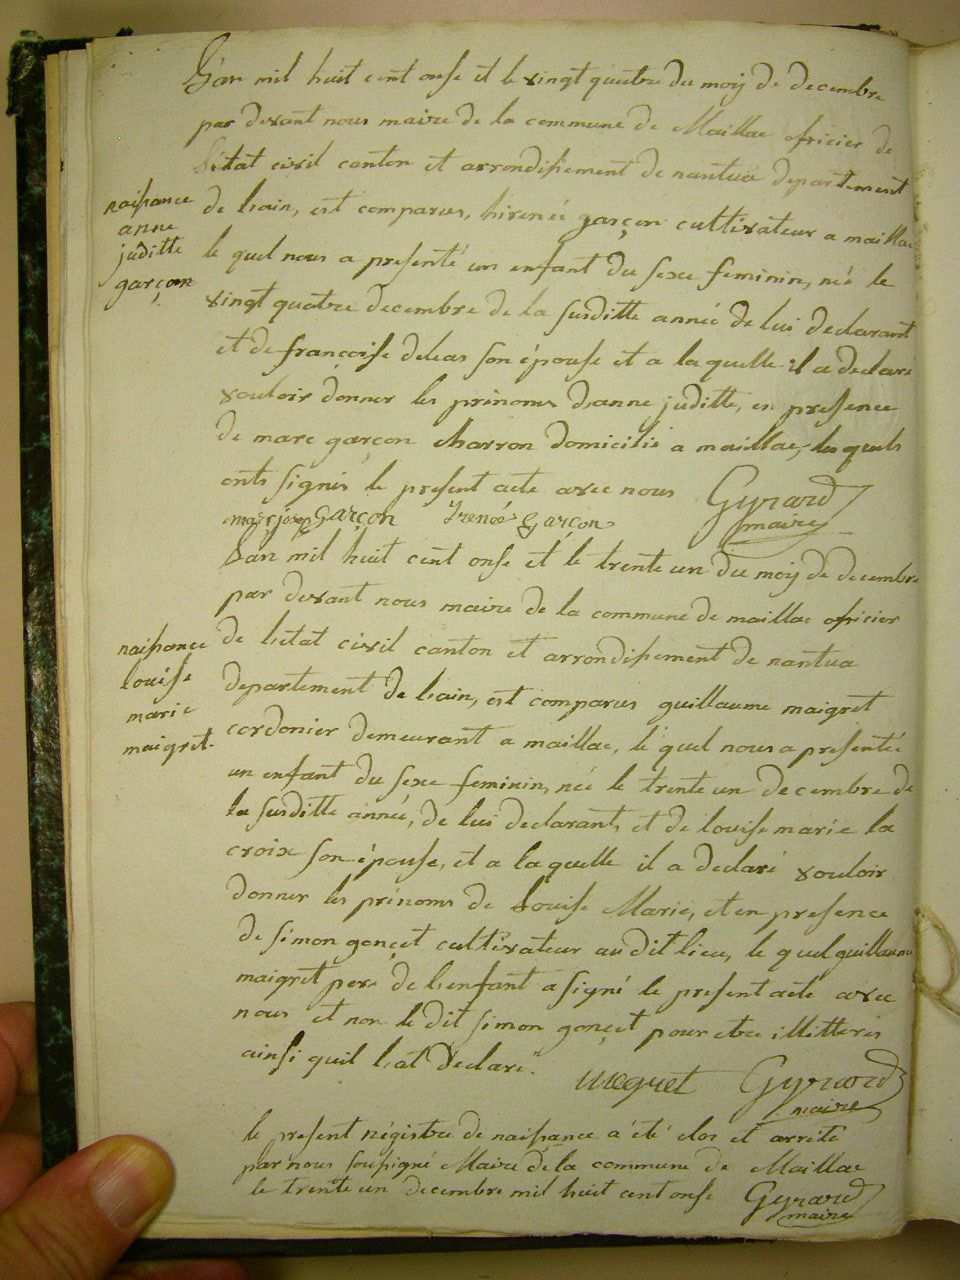 L'an mil huit cent onse et le vingt quatre du moy de decembre
par devant nous maire de la commune de Maillac oficier de
l'etat civil canton et arrondissement de nantua departement
naissance
anne
juditte
garçon
de l'ain, est comparus, hirenée garçon cultivateur a maillac
le quel nous a presenté un enfant du sexe feminin, née le
vingt quatre decembre de la susditte année de lui declarant
et de françoise deleas son épouse et a la quelle il a declaré
vouloir donner les prénoms d'anne juditte, en presence
de marc garçon charron domicilié a maillac, les quels
onts signés le present acte avec nous Gyrard
maire
marc josep Garçon Irenée Garçon
L'an mil huit cent onse et le trente un du moy de decembre
par devant nous maire de la commune de maillac oficier
de l'etat civil canton et arrondissement de nantua
naissance
louise
marie
maigret
departement de l'ain, est comparus guillaume maigret
cordonier demeurant a maillac, le quel nous a presentée
un enfant du sexe feminin, née le trente un decembre de
la susditte année, de lui declarant, et de louise marie la
croix son épouse, et a laquelle il a declaré vouloir
donner les prénoms de Louise Marie, et en presence
de simon gonçet cultivateur audit lieu, le quel guillaume
maigret pere de l'enfant a signé le present acte avec
nous et non le dit simon gonçet pour etre illitterés
ainsi quil l'at declaré.
megret Gyrard
maire
le present régistre de naissance a été clos et arrété
par nous soussigné Maire de la commune de Maillac
le trente un decembre mil huit cent onse Gyrard
maire